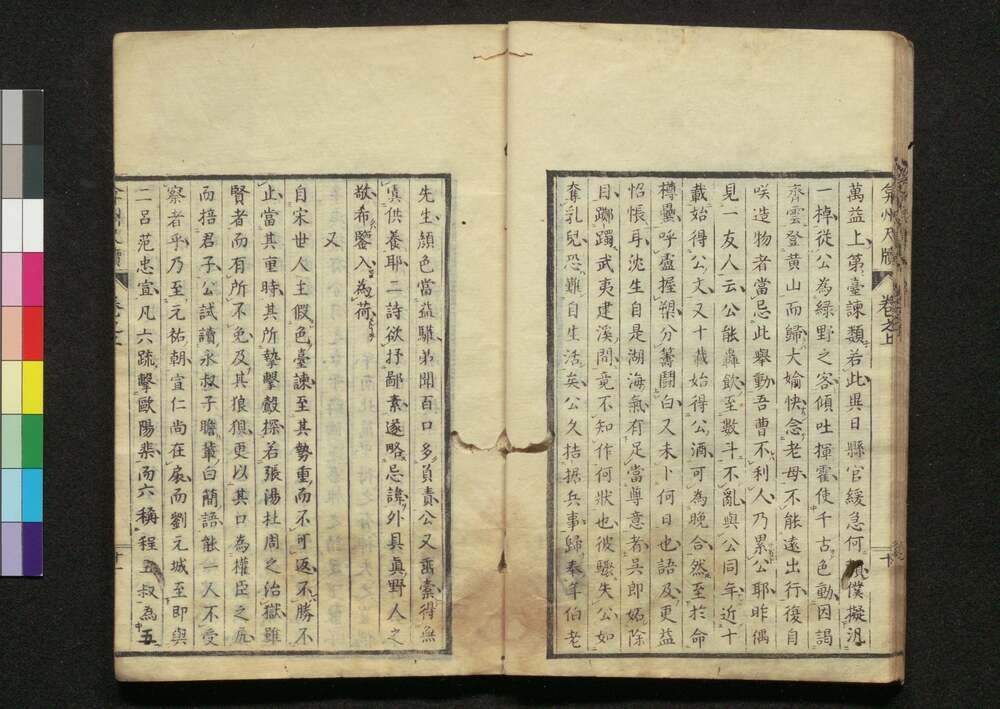 弇州尺牘 卷之上
萬益上第臺諫類若此異日縣官緩急何 僕擬汎
一棹從公為綠野之客傾吐揮霍使千古色動因謁
齊雲登黃山而歸大媮快念老母不能遠出行後自
咲造物者當忌此舉動吾曹不利人乃累公耶昨偶
見一友人云公能轟飲至數斗不亂與公同年近十
載始得公文又十載始得公酒可為晚合然至於命
樽罍呼盧握槊分籌鬪白又未卜何日也語及更益
怊悵耳沈生自是湖海氣有足當尊意者吳郎妬除
目躑躅武夷建溪間竟不知作何狀也彼驟失公如
奪乳兒恐難自生活矣公久拮据兵事歸奉年伯老
先生顏色當益驩弟聞百口多負責公又橐索得無
嗔供養耶二詩欲抒鄙素遂略忌諱外具眞野人之
敬希鑒入為荷
又
自宋世人主假色臺諫至其勢重而不可返不勝不
止當其重時其所摯擊轂探若張湯杜周之治獄雖
賢者而有所不免及其狼狽更以其口為權臣之吭
而掊君子公試讀永叔子瞻軰白簡語能一人不受
察者乎乃至元祐朝宣仁尚在扆而劉元城至即與
二呂范忠宣凡六疏擊歐陽棐而六稱程五叔為五